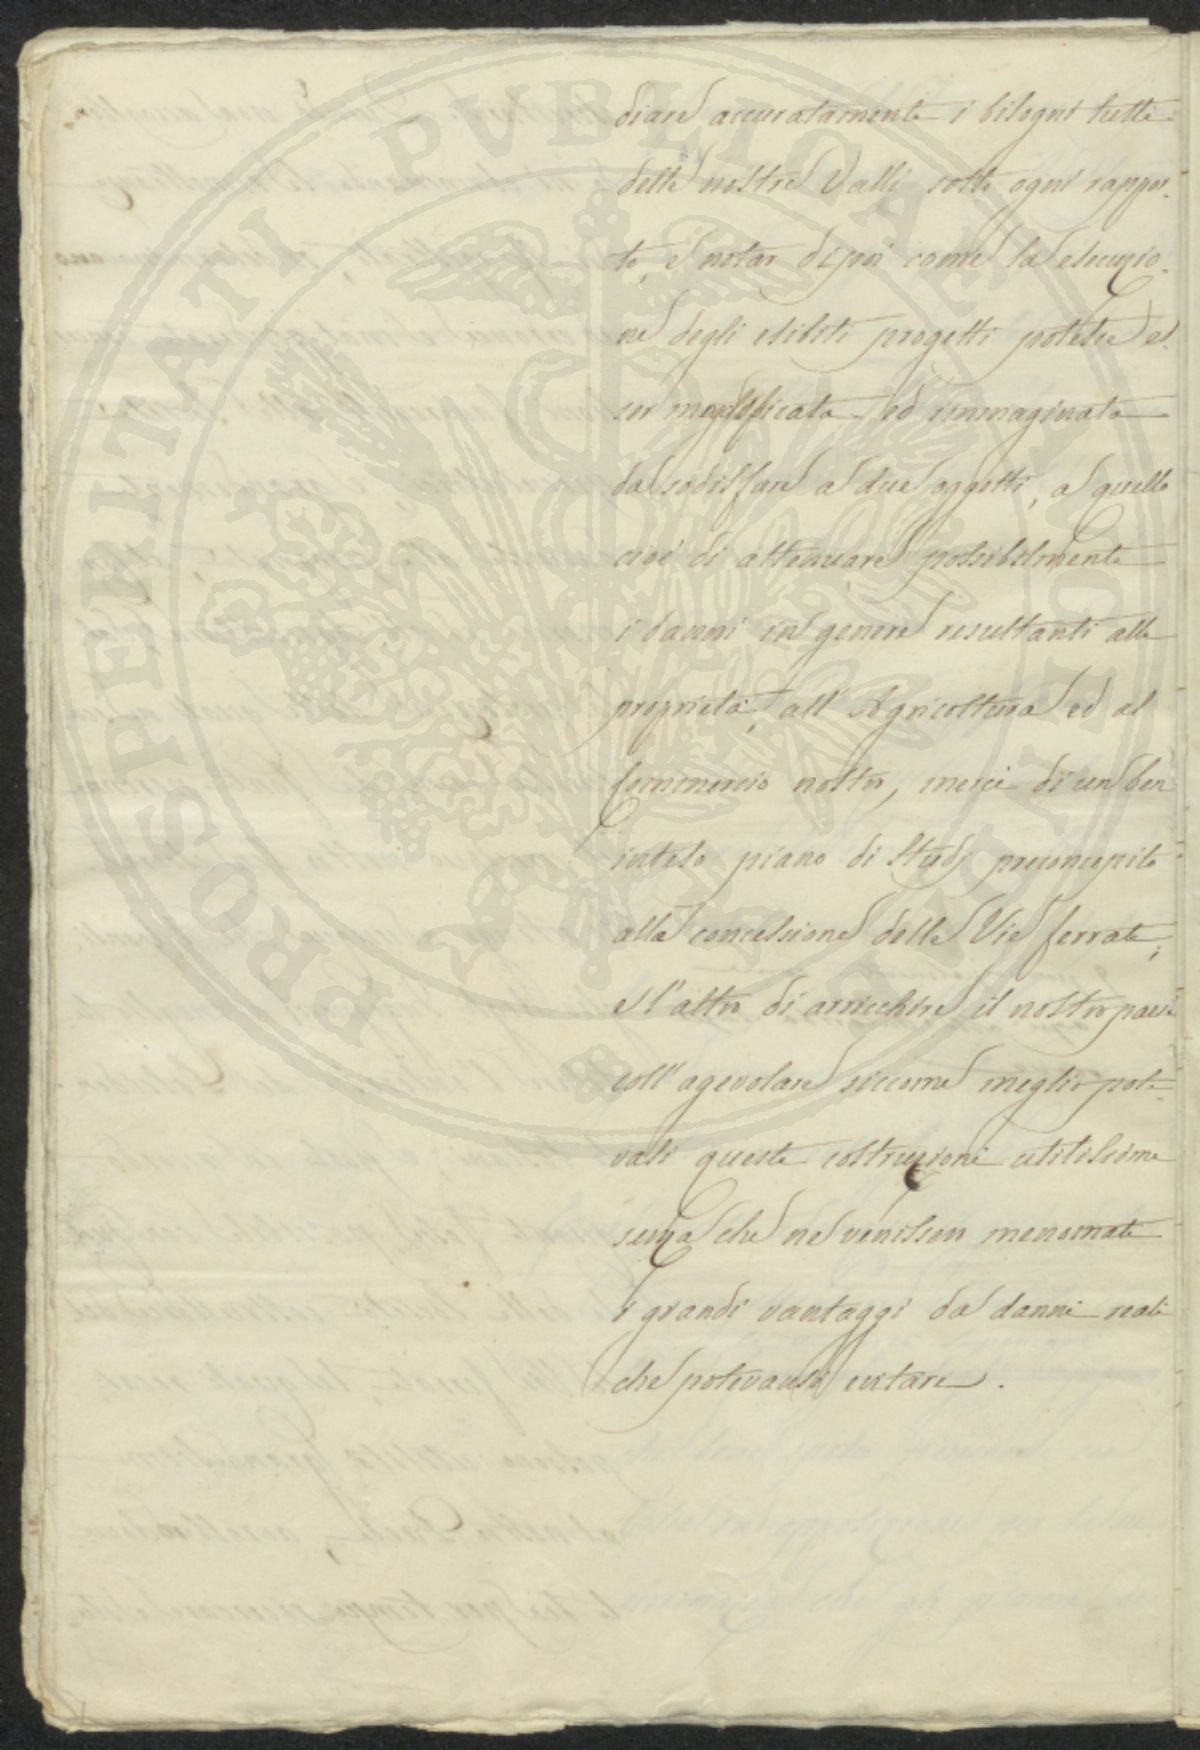 diare accuratamente i bisogni tutti
delle nostre Valli sotto ogni rappor-
to, e notar dipoi come la esecuzio-
ne degli esibiti progetti potesse es-
ser modificata ed immaginata
da sodisfare a due oggetti, a quello
cioè di attenuare possibilmente
i danni in genere resultanti alla
proprietà, all' Agricoltura ed al
Commercio nostro, mercè di un ben
inteso piano di Studj preconcepito
alla concessione delle Vie ferrate;
e l'altro di arricchire il nostro paese
coll' agevolare siccome meglio pote-
vasi queste costruzioni utilissime
senza che ne venissero menomati
i grandi vantaggi da danni reali
che potevansi evitare.
PROSPERITATI PUBLICAE AUGENDAE